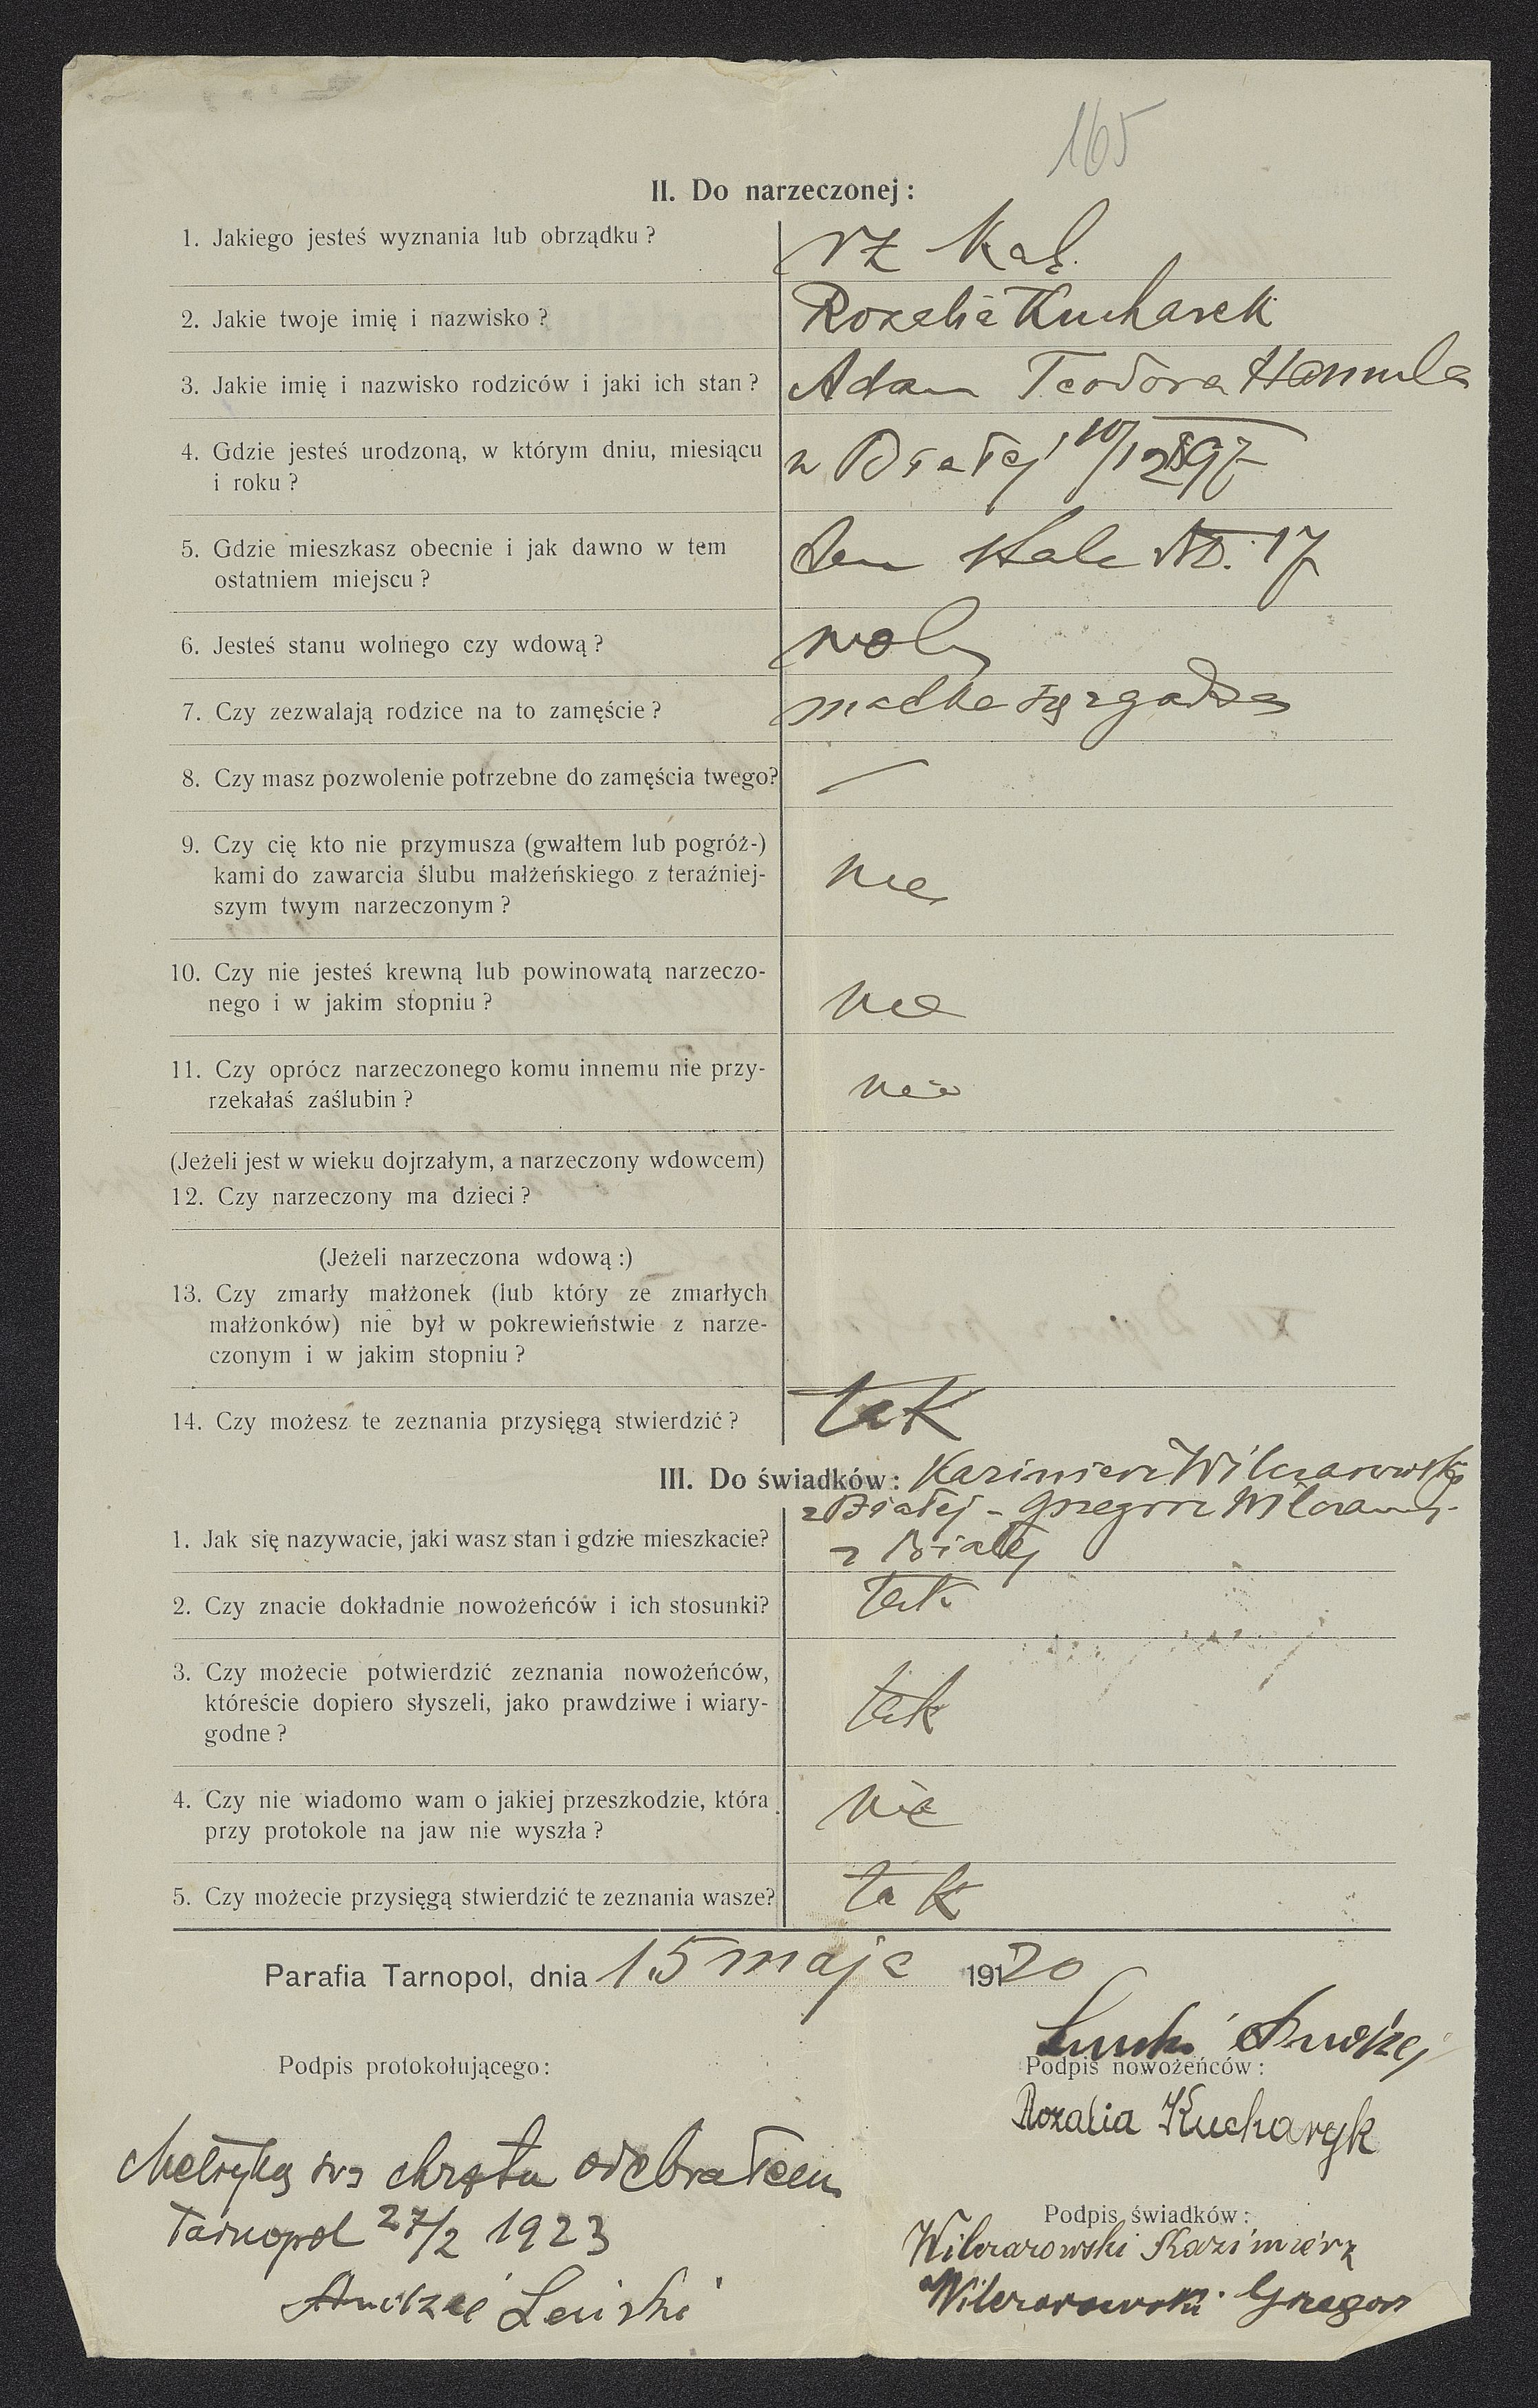 165
II. Do narzeczonej:
1. Jakiego jesteś wyznania lub obrządku?
rz kat.
2. Jakie twoje imię i nazwisko?
Rozalia Kucharek
3. Jakie imię i nazwisko rodziców i jaki ich stan?
Adam Teodora
4. Gdzie jesteś urodzoną, w którym dniu, miesiącu
i roku?
w Białej 10/12 897
5. Gdzie mieszkasz obecnie i jak dawno w tem
ostatniem miejscu?
17
6. Jesteś stanu wolnego czy wdową?
wolny
7. Czy zezwalają rodzice na to zamęście?
matka się zgadza
8. Czy masz pozwolenie potrzebne do zamęścia twego?
—
9. Czy cię kto nie przymusza (gwałtem lub pogróż-)
kami do zawarcia ślubu małżeńskiego z teraźniej-
szym twym narzeczonym?
nie
10. Czy nie jesteś krewną lub powinowatą narzeczo-
nego i w jakim stopniu?
nie
11. Czy oprócz narzeczonego komu innemu nie przy-
rzekałaś zaślubin?
nie
(Jeżeli jest w wieku dojrzałym, a narzeczony wdowcem)
12. Czy narzeczony ma dzieci?
(Jeżeli narzeczona wdową:)
13. Czy zmarły małżonek (lub który ze zmarłych
małżonków) nie był w pokrewieństwie z narze-
czonym i w jakim stopniu?
14. Czy możesz te zeznania przysięgą stwierdzić?
tak
III. Do świadków: Kazimierz Wilczarowski
z Białej - Grzegorz
z Białej
1. Jak się nazywacie, jaki wasz stan i gdzie mieszkacie?
2. Czy znacie dokładnie nowożeńców i ich stosunki?
tak
3. Czy możecie potwierdzić zeznania nowożeńców,
któreście dopiero słyszeli, jako prawdziwe i wiary-
godne?
tak
4. Czy nie wiadomo wam o jakiej przeszkodzie, która
przy protokole na jaw nie wyszła?
nie
5. Czy możecie przysięgą stwierdzić te zeznania wasze?
tak
Parafia Tarnopol, dnia 15 maja 19120
Podpis protokołującego:
Andrzej
Podpis nowożeńców:
Rozalia Kucharyk
Metrykę chrztu odebrałem
Tarnopol 27/2 1923
Podpis świadków:
Wilczarowski Kazimierz
Wilczarowski Grzegorz